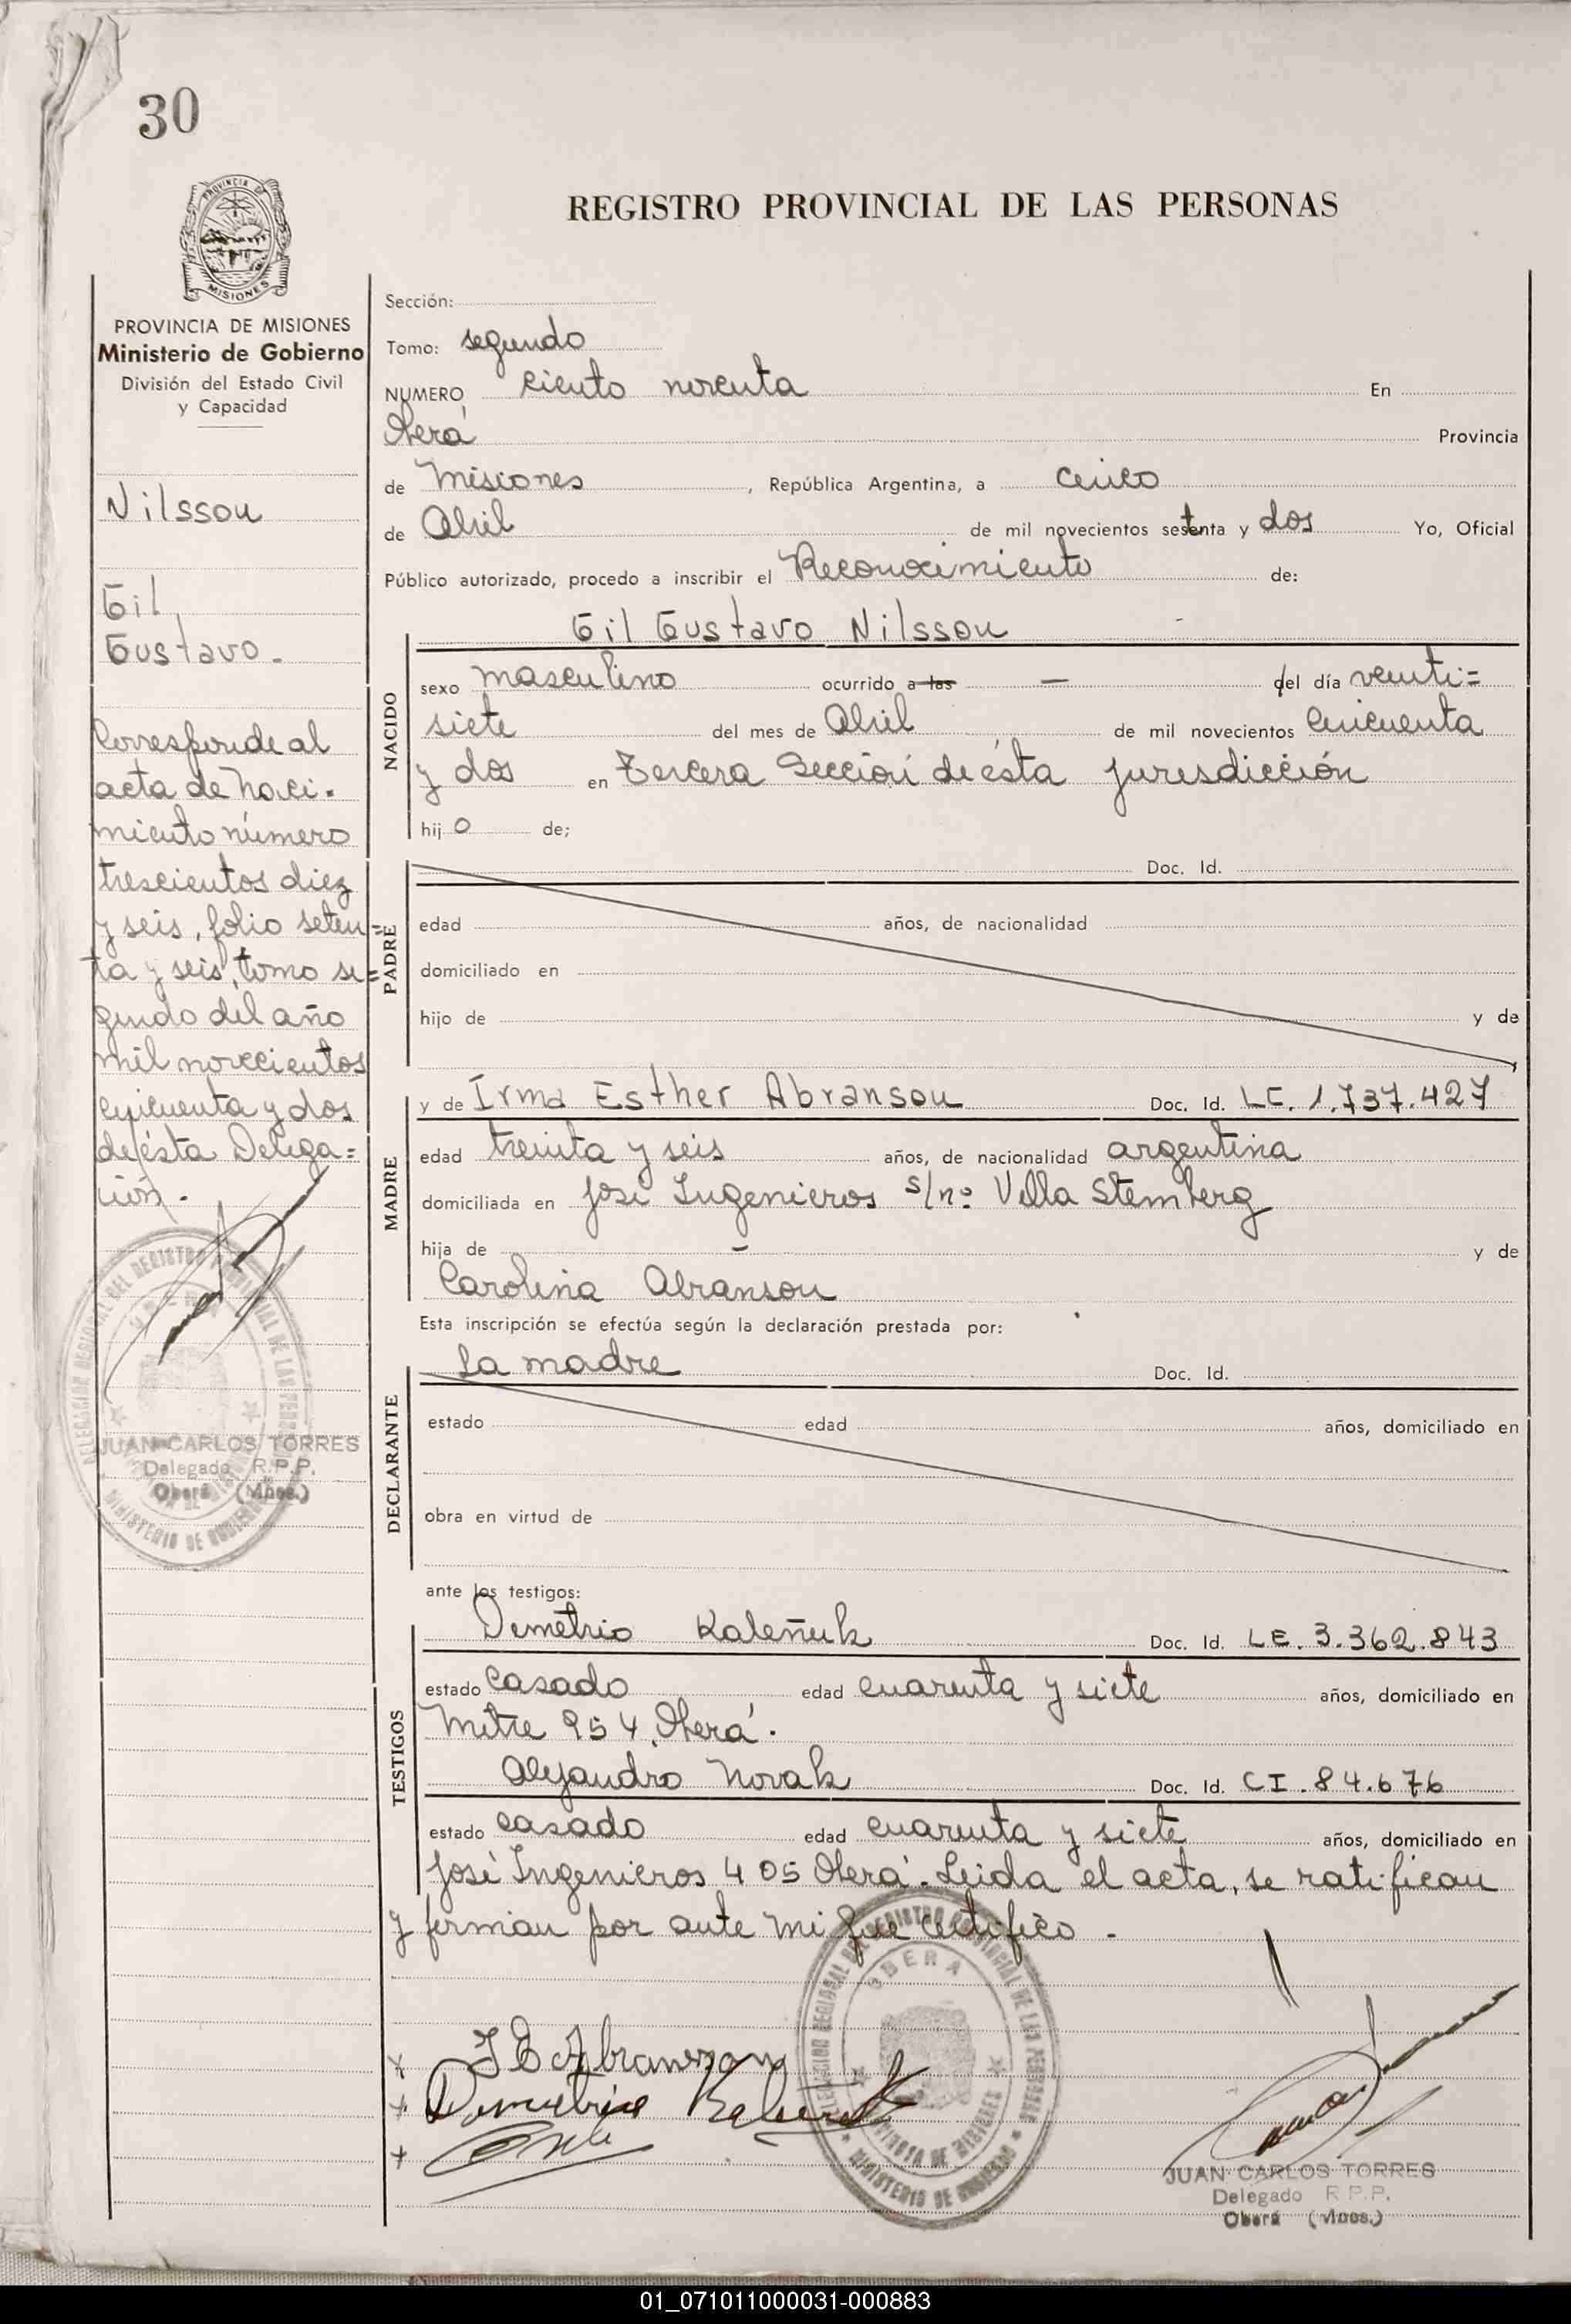 30
PROVINCIA DE
MISIONES
REGISTRO PROVINCIAL DE LAS PERSONAS
PROVINCIA DE MISIONES
Ministerio de Gobierno
División del Estado Civil
y Capacidad
Nilsson
Gil
Gustavo.-
Corresponde al
acta de Naci-
miento número
trescientos diez
y seis, folio seten=
ta y seis, tomo se=
gundo del año
mil novecientos
cincuenta y dos
de ésta Delega=
ción.-
JUAN CARLOS TORRES
Delegado R.P.P.
Oberá (Mnes.)
Sección:
Tomo: segundo
NUMERO ciento noventa En
Oberá Provincia
de Misiones, República Argentina, a cinco
de Abril de mil novecientos setenta y dos Yo, Oficial
Público autorizado, procedo a inscribir el Reconocimiento de:
NACIDO
Gil Gustavo Nilsson
sexo masculino ocurrido a las — del día veinti=
siete del mes de Abril de mil novecientos cincuenta
y dos en Tercera Sección de ésta jurisdicción
hijo de;
PADRE
Doc. Id.
edad años, de nacionalidad
domiciliado en
hijo de y de
MADRE
y de Irma Esther Abranson Doc. Id. LC. 1.737.427
edad treinta y seis años, de nacionalidad argentina
domiciliada en José Ingenieros s/nº Villa Stemberg
hija de - y de
Carolina Abranson
Esta inscripción se efectúa según la declaración prestada por:
DECLARANTE
la madre Doc. Id.
estado edad años, domiciliado en
obra en virtud de
ante los testigos:
TESTIGOS
Demetrio Kaleñuk Doc. Id. LE. 3.362.843
estado casado edad cuarenta y siete años, domiciliado en
Mitre 954, Oberá.
Alejandro Novak Doc. Id. CI. 84.676
estado casado edad cuarenta y siete años, domiciliado en
José Ingenieros 405 Oberá. Leida el acta, se ratifican
y firman por ante mi que certifico.-
OBERA
MINISTERIO DE GOBIERNO
I E Abranson
JUAN CARLOS TORRES
Delegado R.P.P.
Oberá (Mnes.)
01_071011000031-000883